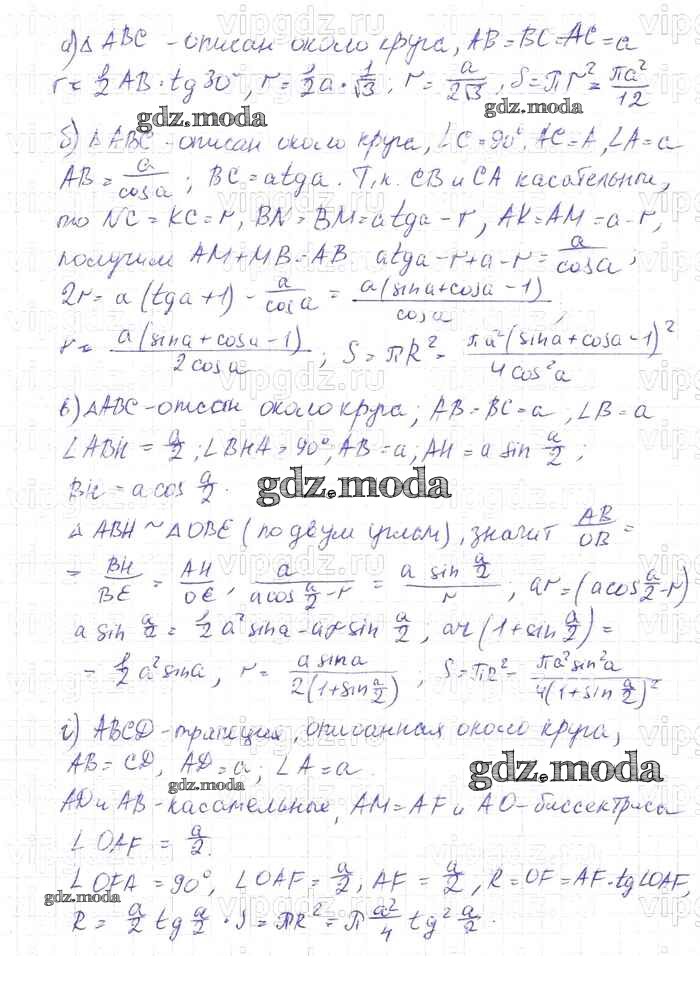 а) △ ABC - описан около круга, AB = BC = AC = a
r = 1/2 AB · tg 30°, r = 1/2 a · 1/√3, r = a/2√3, S = πr² = πa²/12
gdz.moda gdz.moda
б) △ABC - описан около круга, ∠C = 90°, AC = A, ∠A = a
AB = a/cos a ; BC = a tg a. Т.к. CB и CA касательные,
то NC = KC = r, BN = BM = a tg a - r, AK = AM = a - r,
получим AM + MB = AB a tg a - r + a - r = a/cos a ;
2r = a (tg a + 1) - a/cos a = a(sin a + cos a - 1)/cos a ;
r = a(sin a + cos a - 1)/2 cos a ; S = πR² = πa²(sin a + cos a - 1)²/4 cos² a
в) △ABC - описан около круга; AB = BC = a, ∠B = a
∠ABH = a/2 ; ∠BHA = 90°, AB = a; AH = a sin a/2 ;
BH = a cos a/2 .
gdz.moda
△ ABH ~ △ OBE (по двум углам), значит AB/OB =
= BH/BE = AH/OE, a/(a cos a/2 - r) = a sin a/2 / r, ar = (a cos a/2 - r)
a sin a/2 = 1/2 a² sin a - ar sin a/2, ar (1 + sin a/2) =
= 1/2 a² sin a, r = a sin a/2(1 + sin a/2) ; S = πR² = πa² sin² a/4(1 + sin a/2)²
г) ABCD - трапеция, описанная около круга,
AB = CD, AD = a; ∠A = a.
gdz.moda
AD и AB - касательные, AM = AF и AO - биссектриса
∠OAF = a/2.
∠OFA = 90°, ∠OAF = a/2, AF = a/2, R = OF = AF · tg∠OAF,
gdz.moda
R = a/2 tg a/2 · S = πR² = π a²/4 tg² a/2 .